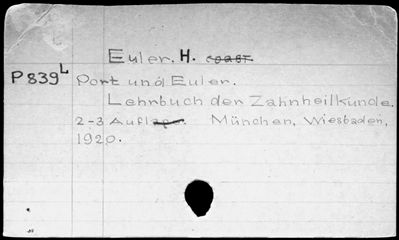 Euler. H.
P839L Port und Euler.
Lehrbuch der Zahnheilkunde.
2-3 Aufl. München, Wiesbaden,
1920.